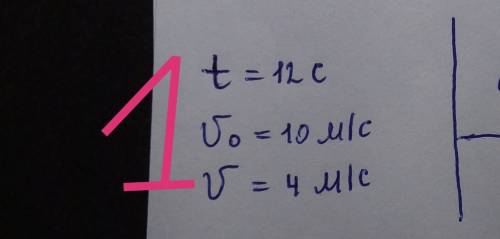 1
t = 12 с
υ₀ = 10 м/с
υ = 4 м/с